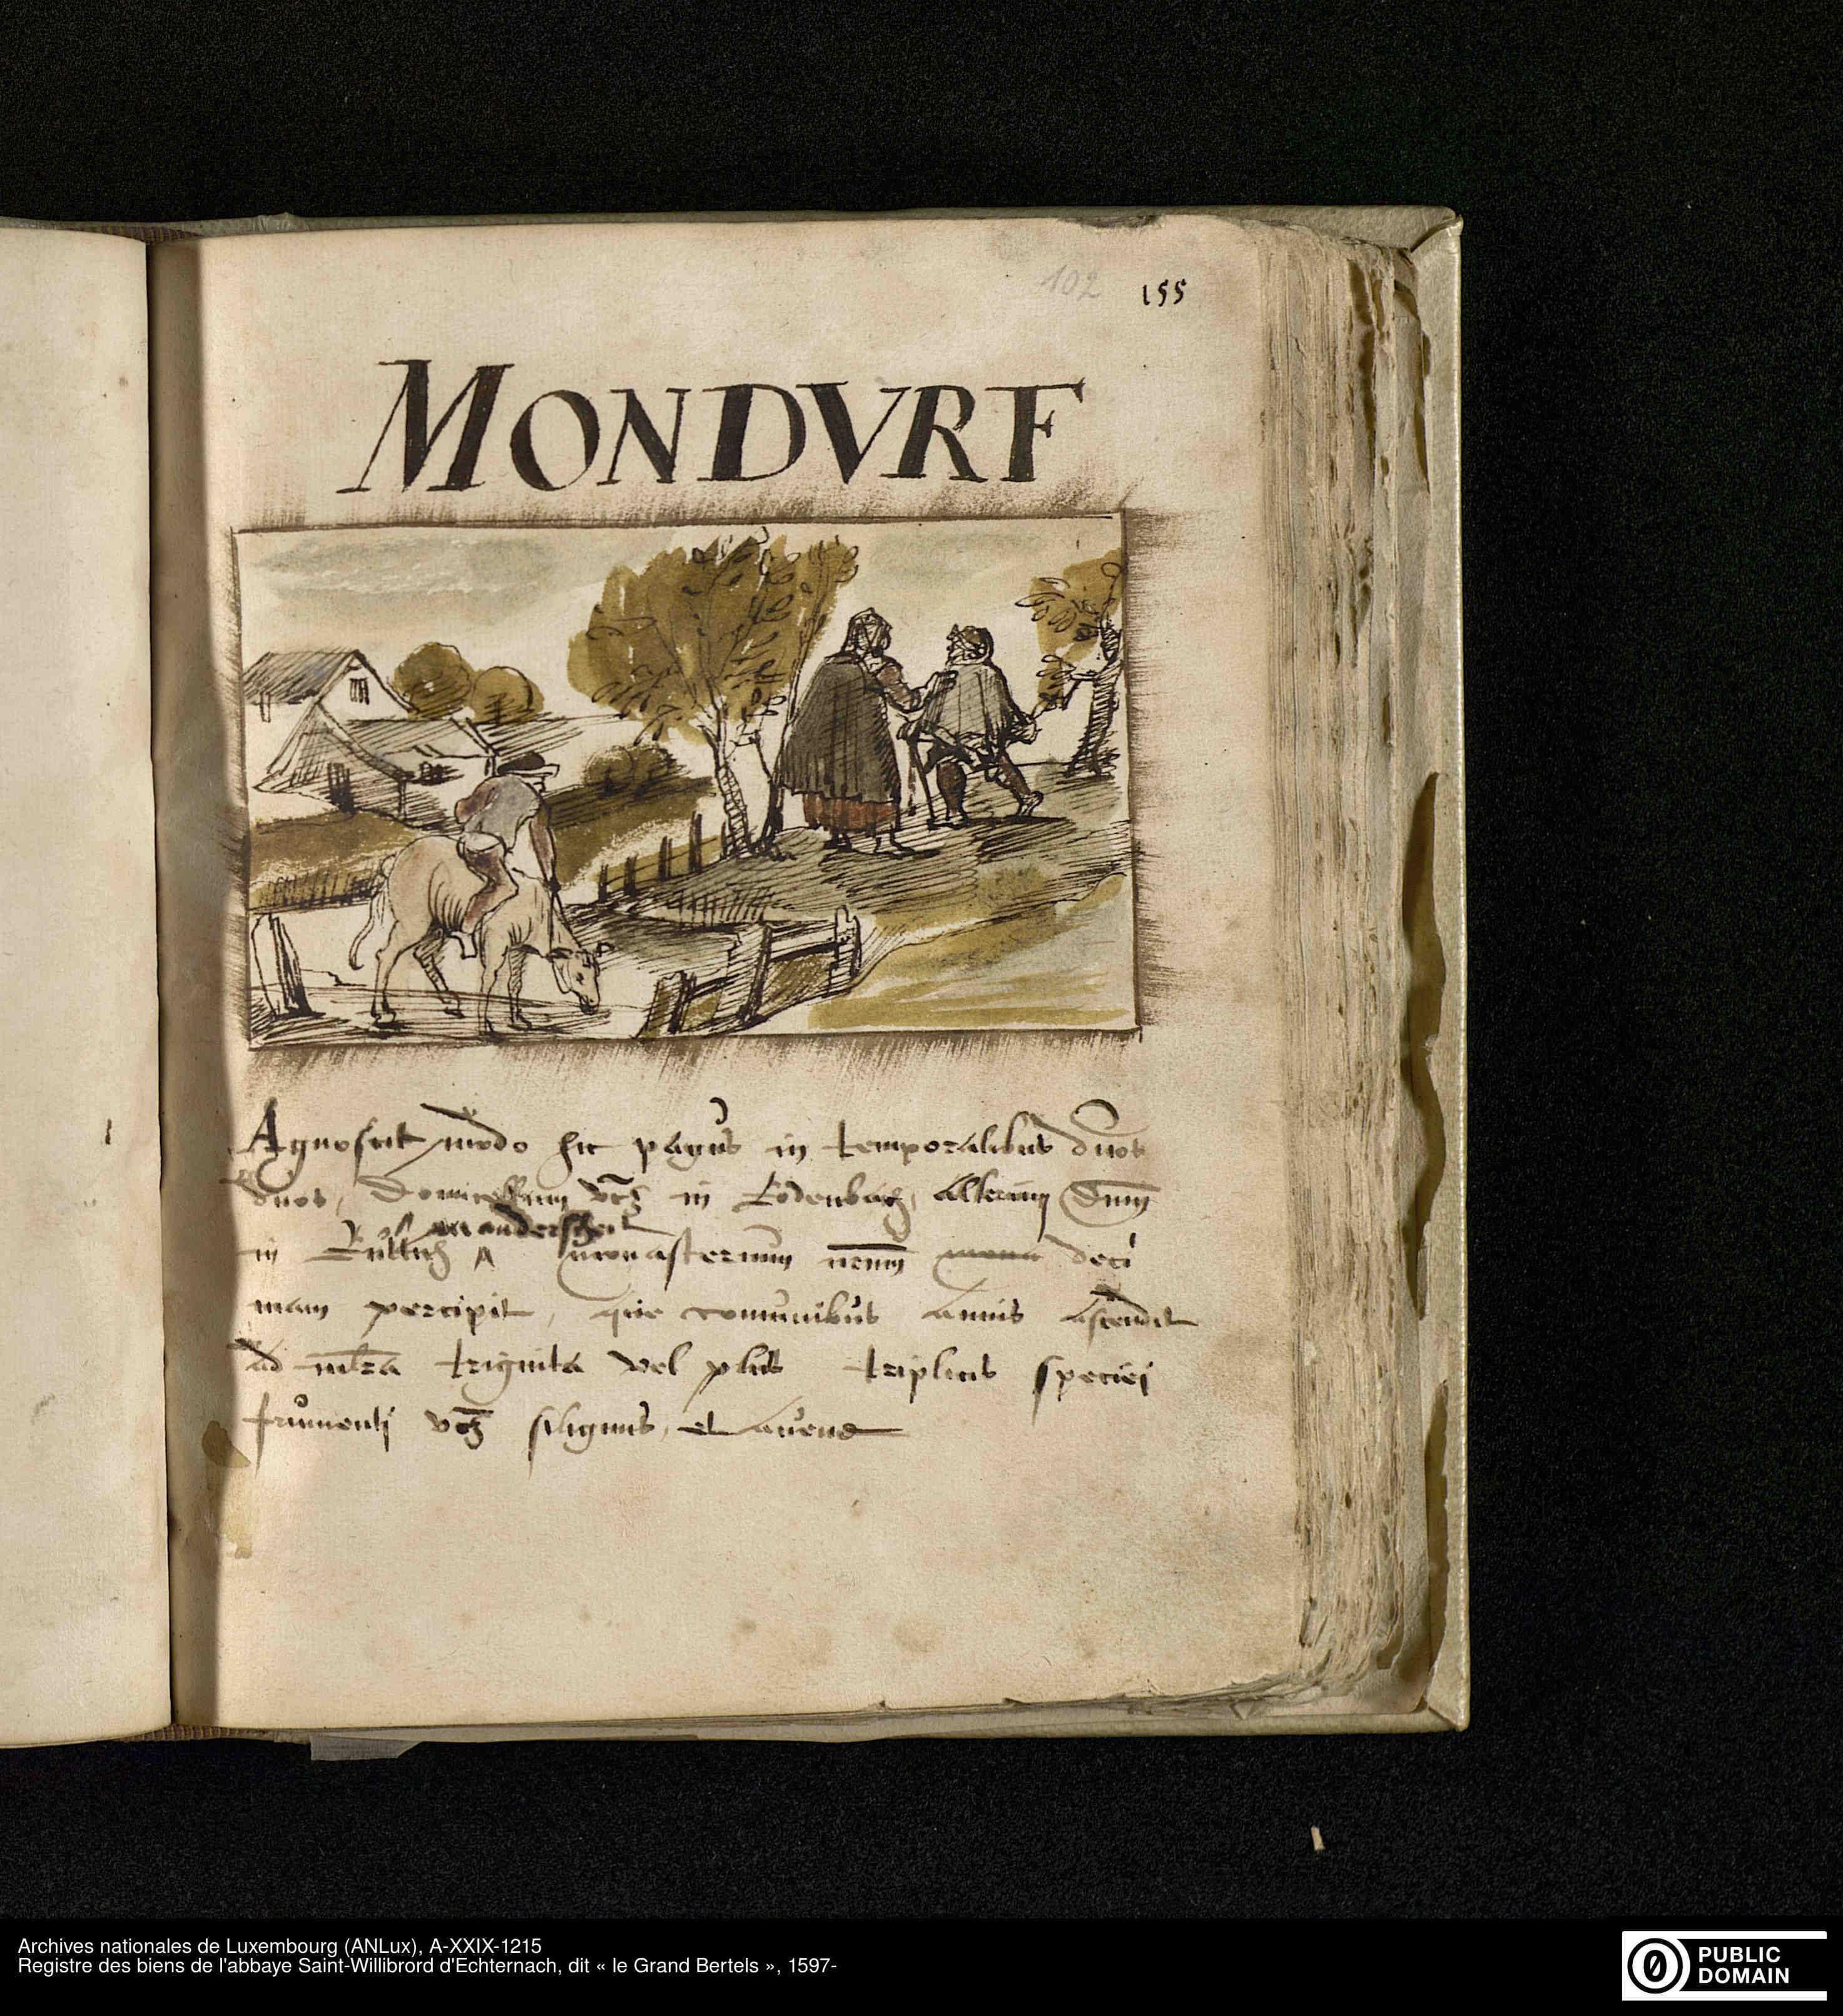 102 155
MONDVRF
Agnoscit modo hic pagus in temporalibus duos
duos, Domicellum vcz in Lodenbach, alterum Dnm
an anderscheit
in Bullich monasterium nrum deci
mam percipit, que comunibus annis ascendit
ad mlra triginta vel plus triplicis speciei
frumenti vcz siliginis, et avene
Archives nationales de Luxembourg (ANLux), A-XXIX-1215
Registre des biens de l'abbaye Saint-Willibrord d'Echternach, dit « le Grand Bertels », 1597-
PUBLIC
DOMAIN